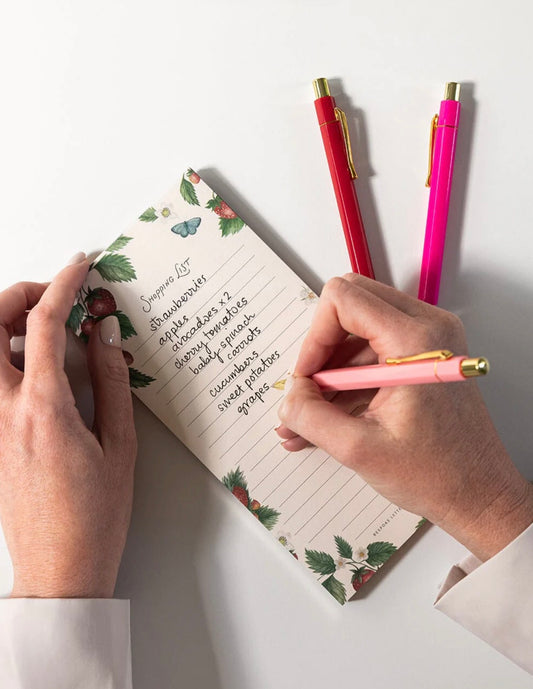 Shopping List
strawberries
apples
avocadoes x 2
cherry tomatoes
baby spinach
carrots
cucumbers
sweet potatoes
grapes